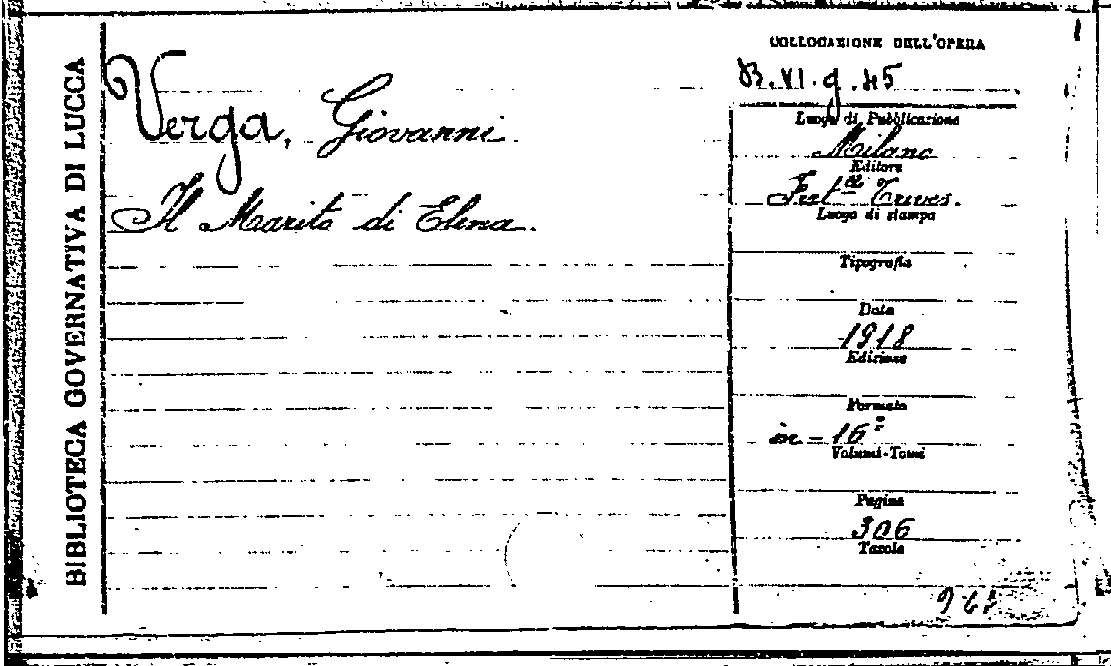 BIBLIOTECA GOVERNATIVA DI LUCCA
Verga, Giovanni.
Il Marito di Elena.
COLLOCAZIONE DELL'OPERA
B.VI.g.45
Luogo di Pubblicazione
Milano
Editore
Treves.
Luogo di stampa
Tipografia
Data
1918
Edizione
Formato
in-16º
Volumi-Tomi
Pagine
306
Tavole